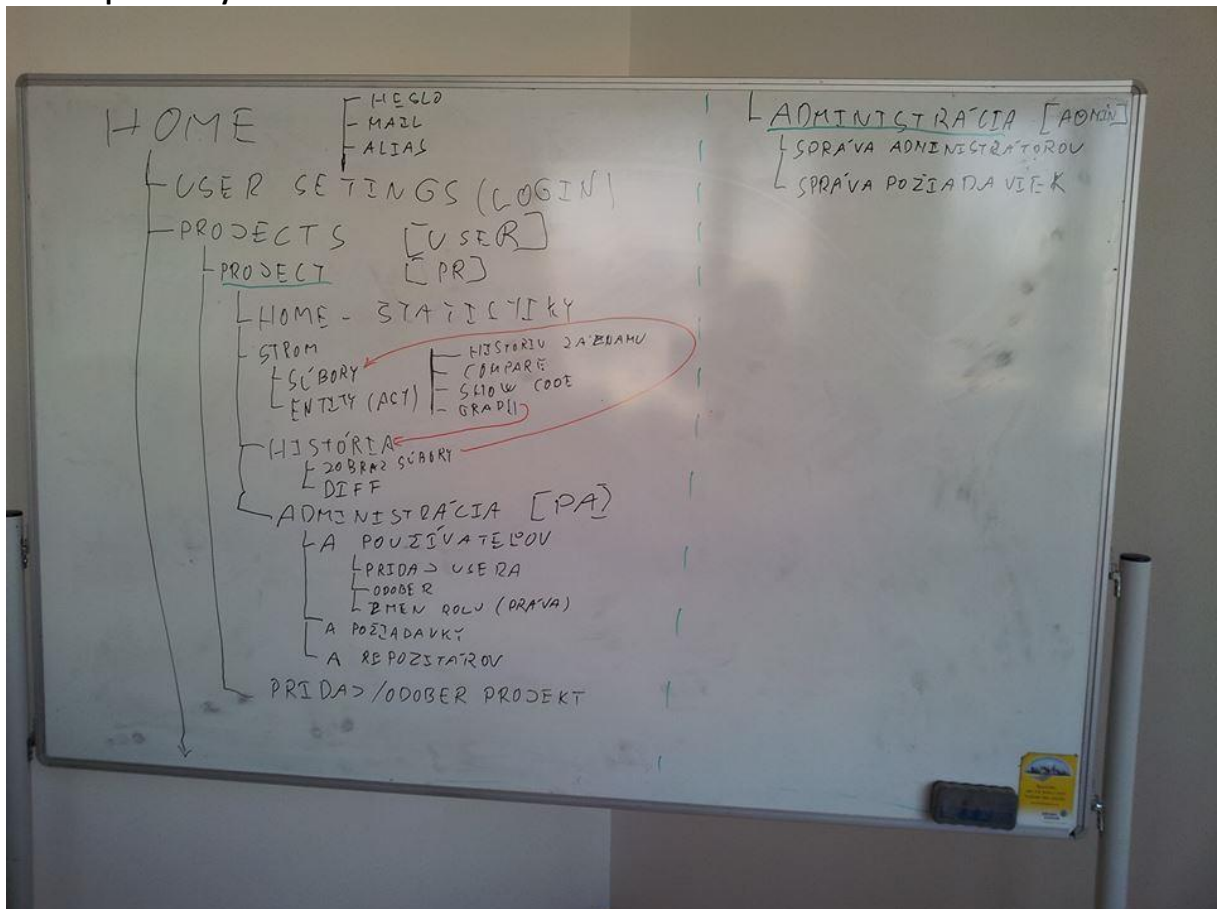 HOME
HESLO
MAIL
ALIAS
USER SETINGS (LOGIN)
PROJECTS [USER]
PROJECT [PR]
HOME - STATISTIKY
STROM
SÚBORY
ENTITY (ACT)
HISTORIU ZÁZNAMU
COMPARE
SHOW CODE
GRAPH
HISTÓRIA
ZOBRAZ SÚBORY
DIFF
ADMINISTRÁCIA [PA]
A POUZÍVATEĽOV
PRIDAJ USERA
ODOBER
ZMEN ROLU (PRÁVA)
A POŽIADAVKY
A REPOZITÁROV
PRIDAJ/ODOBER PROJEKT
ADMINISTRÁCIA [ADMIN]
SPRÁVA ADMINISTRÁTOROV
SPRÁVA POZIADAVIEK